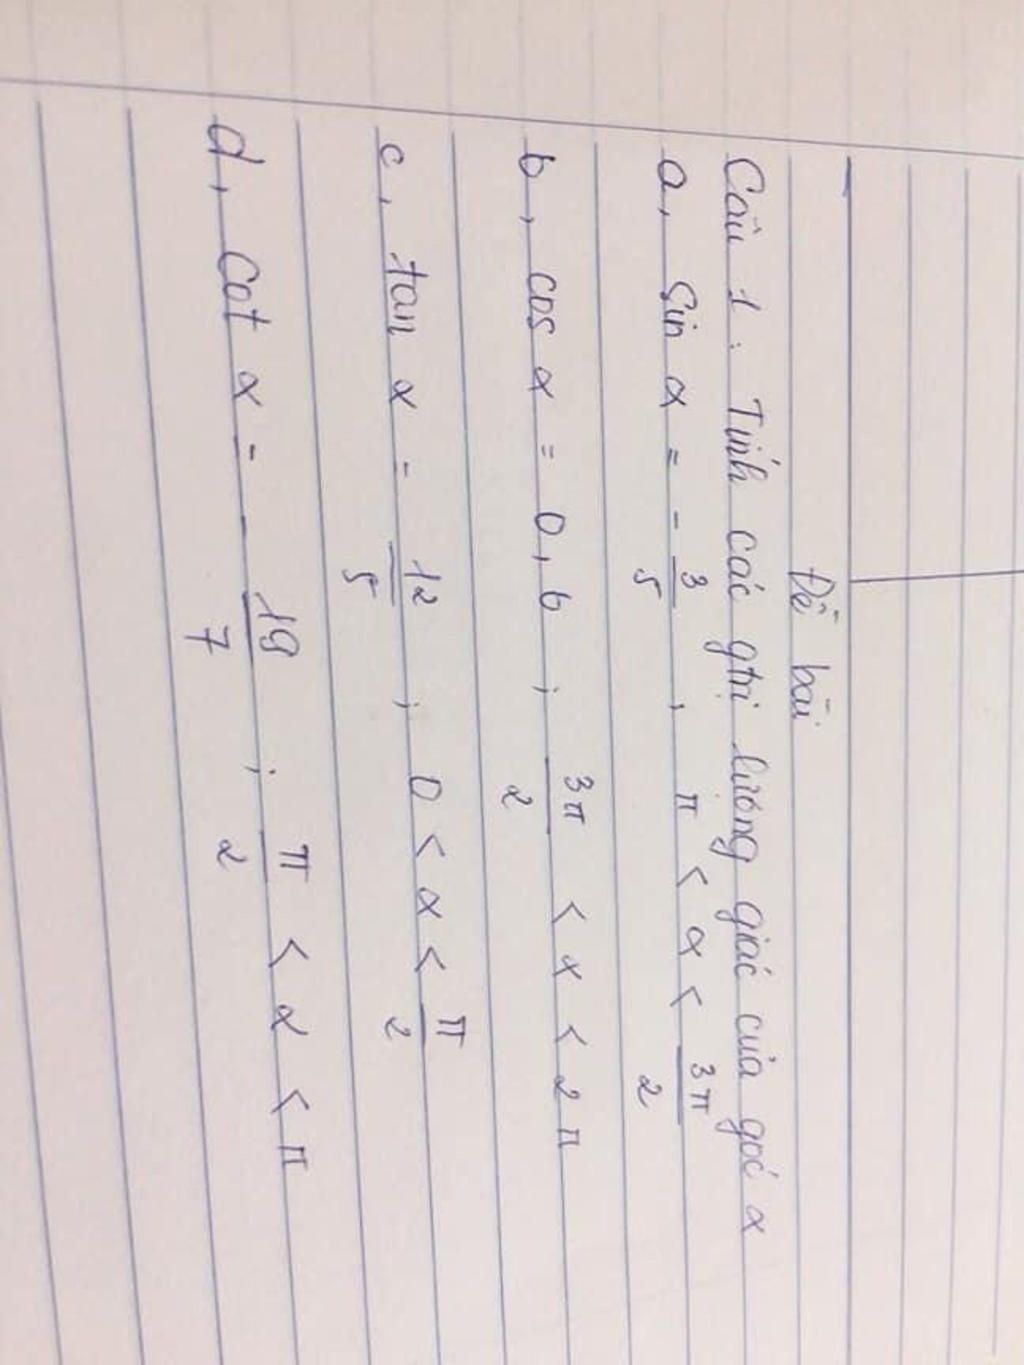 Đề bài
Câu 1 : Tính các gtrị lượng giác của góc α
a, Sin α = - 3/5 , π < α < 3π/2
b, cos α = 0,6 ; 3π/2 < α < 2π
c, tan α = 12/5 ; 0 < α < π/2
d, Cot α = - 19/7 ; π/2 < α < π